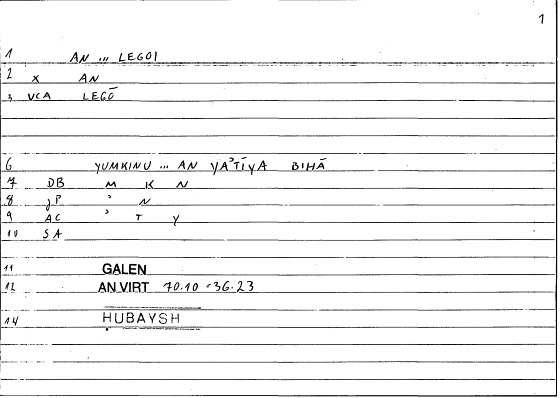 1
1 AN ... LEGOI
2 X AN
3 VCA LEGŌ
6 YUMKINU ... AN YAʾTIYA BIHĀ
7 DB M K N
8 JP ʾ N
9 AC ʾ T Y
10 SA
11 GALEN
12 AN.VIRT 70.10 = 36.23
14 HUBAYSH